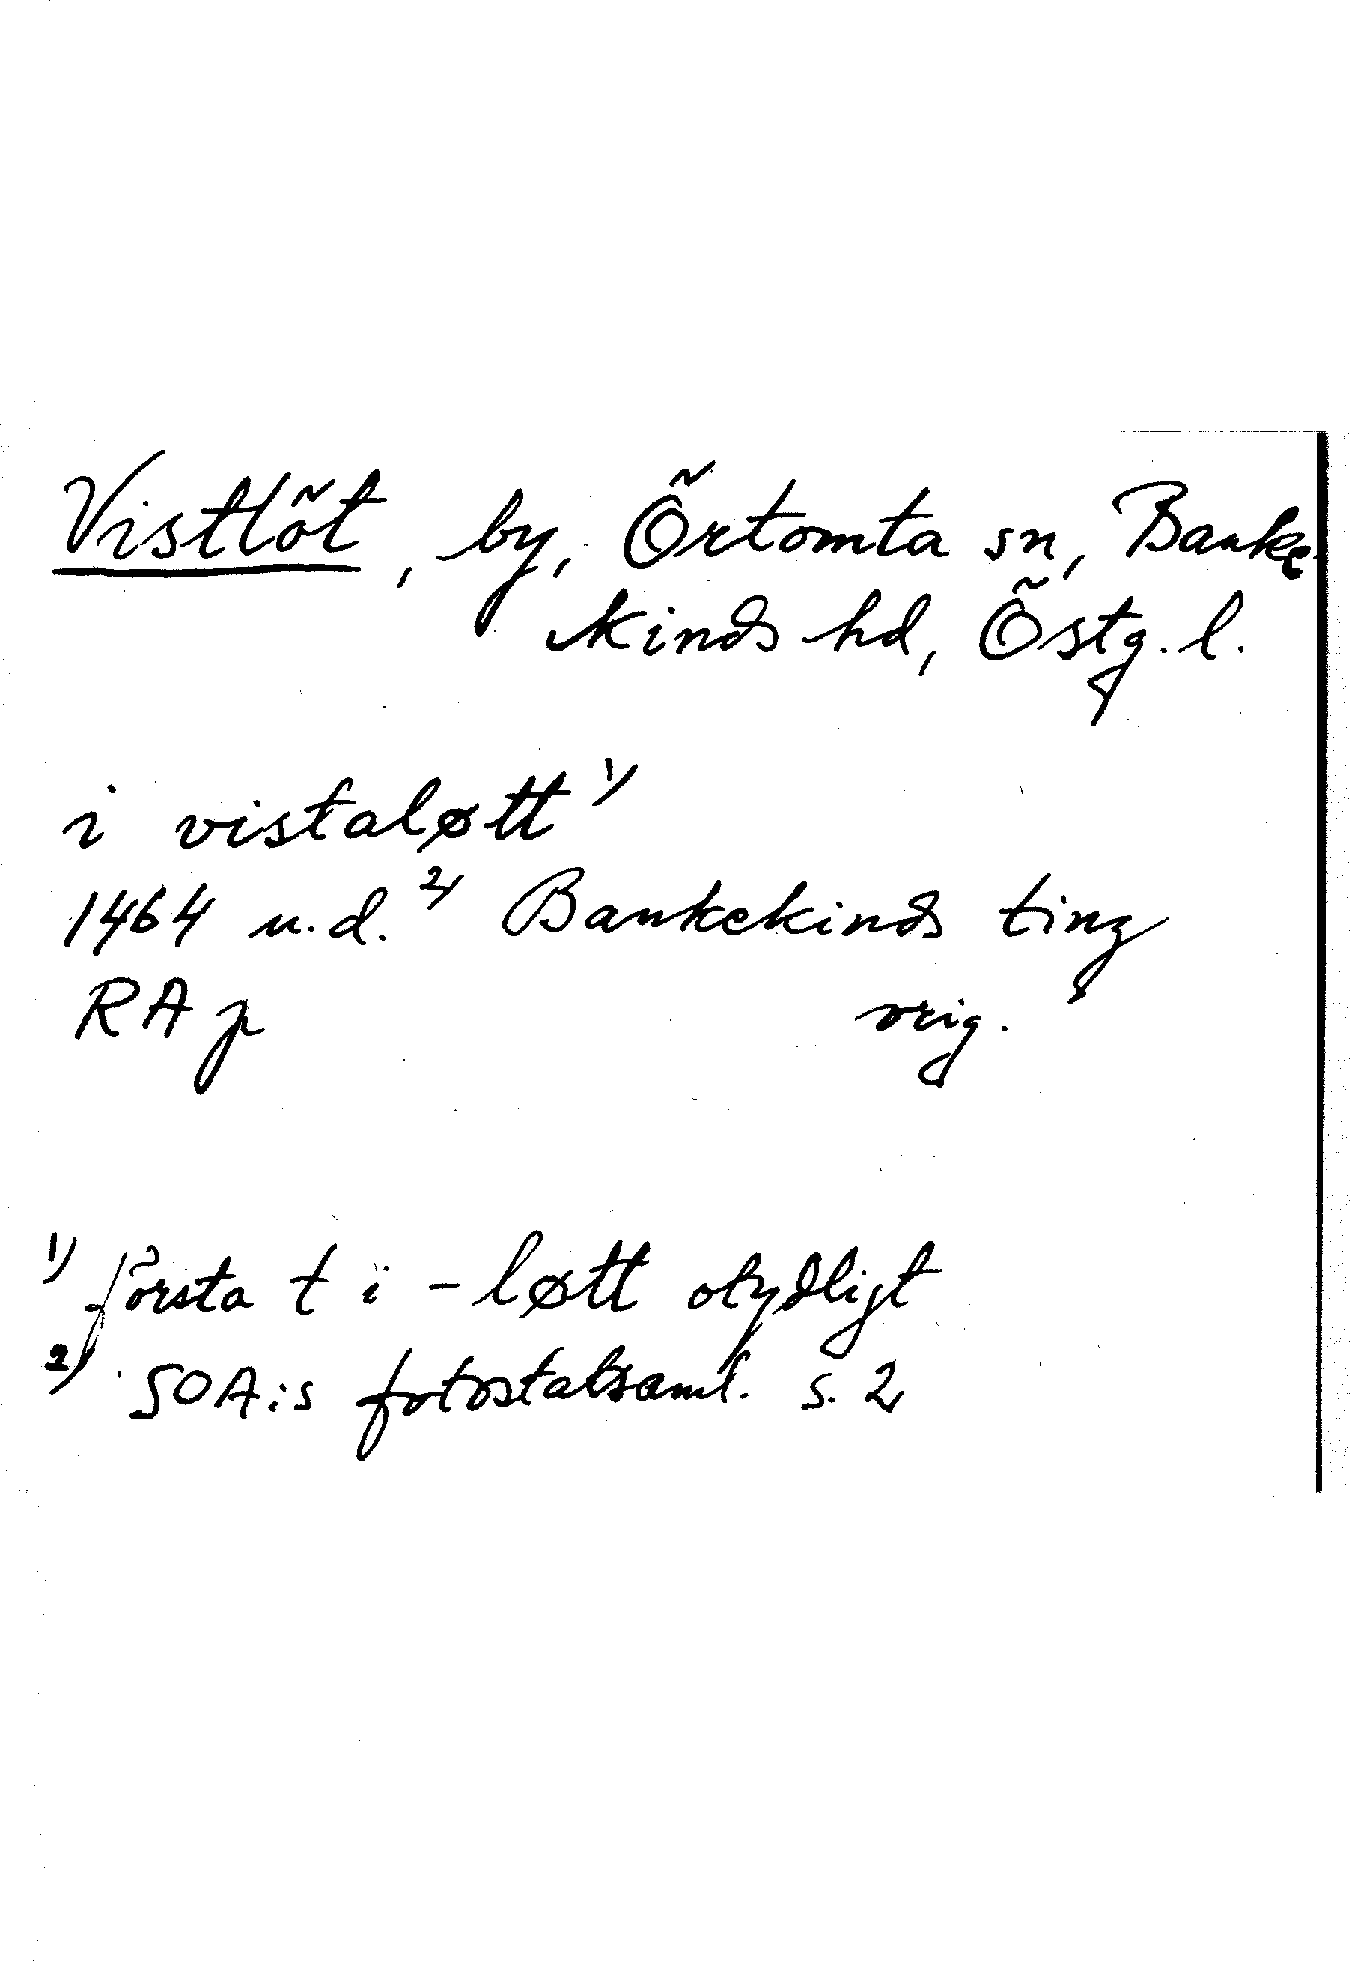 Vistlöt, by, Örtomta sn, Banke-
kinds hd, Östg. l.
i vistaløtt 1)
1464 u.d. 2) Bankekinds ting
RA p orig.
1) första t i -løtt otydligt
2) SOA:s fotostatsaml. s. 2